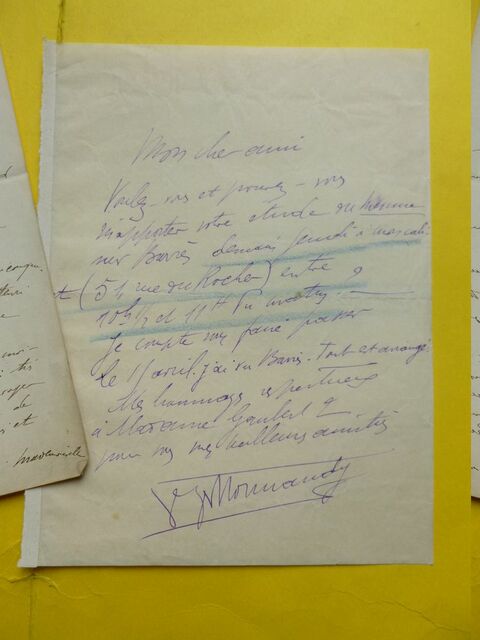 Mon cher ami
Voulez-vous et pouvez-vous
m'apporter votre étude sur
sur Barrès demain jeudi à mon cabi
net (51, rue du Rocher) entre
10h 1/2 et 11h du matin. ?
Je compte vous faire passer
le 15 avril. j'ai vu Barrès. Tout est arrangé.
Mes hommages respectueux
à Madame Gaubert &
pour vous mes meilleures amitiés
Normandy
mademoiselle
de
et